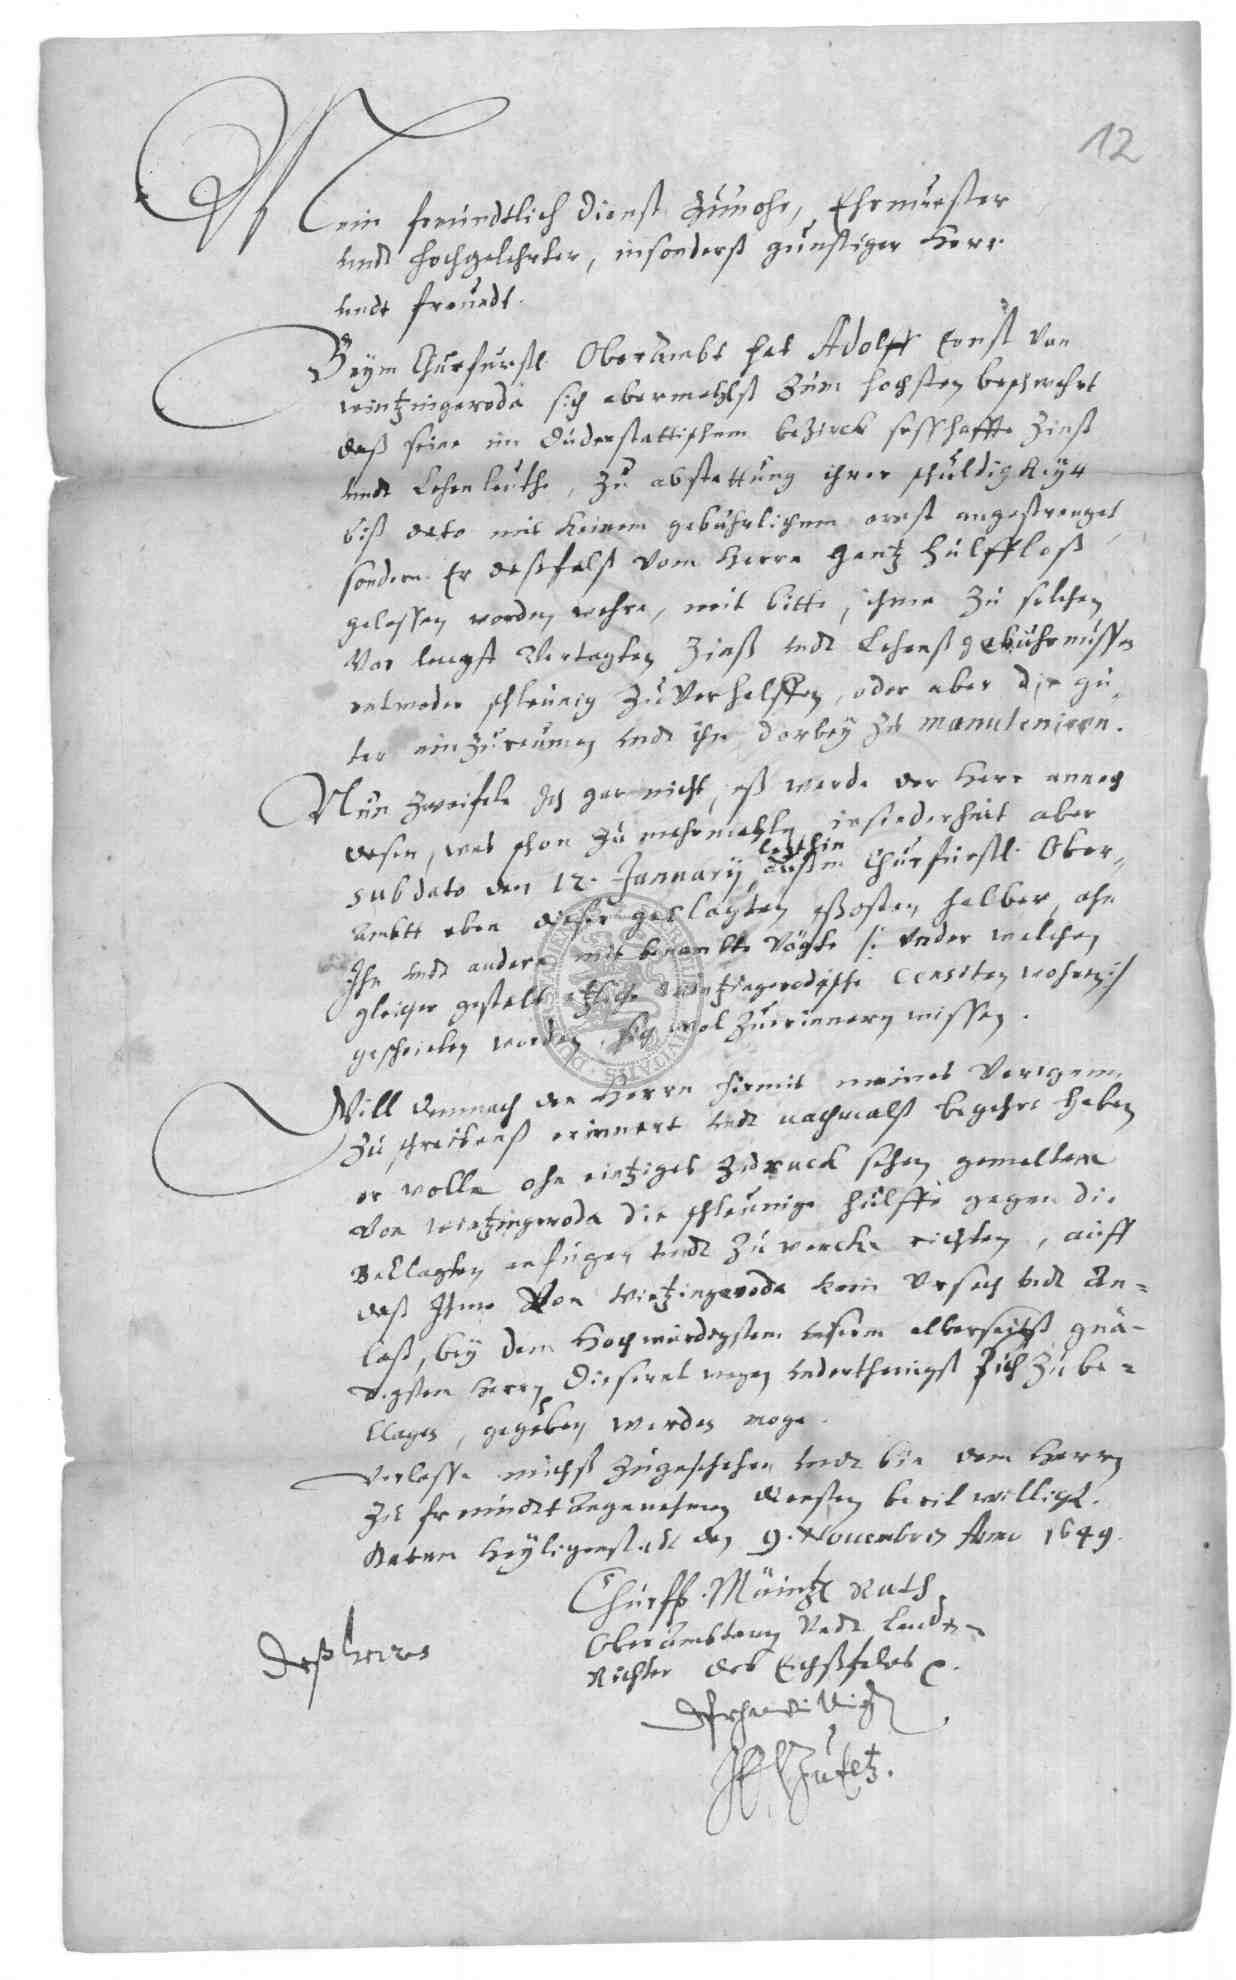 12
Mein freundtlich dienst Zuuohr, Ehrnuester
undt hochgelehrter, insonderß gunstiger Herr
undt freundt.
Beym Churfurstl. Oberambt hat Adolff Ernst von
wintzingeroda sich abermahlß zum hochsten beschwehrt
daß seine im Duderstattischem bezirck seßhaffte Zinß
undt Lehenleuthe, zu abstattung ihrer schuldigkeyt
biß dato mit keinem gebuhrlichem ernst angestrenget
sondern Er deßfalß vom Herrn gantz hulffloß
gelassen worden wehre, mit bitte, ihme zu solchen
vor lengst vertagten Zinß undt Lehenß gebuhrnussen
entweder schleunig zu verhelffen, oder aber die gu-
ter einzureumen undt ihn darbey zu manuteniren.
Nun zweifele Ich gar nicht, eß werde der Herr annoch
dessen, was schon zu mehrmahln insonderheit aber
sub dato den 12. January letzthin auß m Churfurstl. Ober-
ambtt eben dieser geclagten halber, ahn
Ihn undt andere mit benambte Vögte /: under welchen
gleicher gestalt etzliche wintzingerodische censiten wohnen :/
geschrieben worden, sich wol zuerinnern wissen.
Will demnach den Herrn hiermit meines vorigenn
zu schreibenß erinnert undt nachmalß begehrt haben
er wolle ohn eintziges zuruck sehen gemeltem
von wintzingeroda die schleunige hulffe gegen die
Beklagten anfugen undt zu wercke richten, auff
daß Ihme von wintzingeroda kein ursach undt An-
laß, bey dem Hochwurdigstem unserm allerseitß gnä-
digsten Herrn dieserwegen underthenigst sich zu be-
clagen, gegeben werden moge.
Verlasse michß zugeschehen undt bin dem Herrn
zu freundtangenehmen diensten bereitwilligk.
Datum Heyligenstadt den 9. Nouembris Anno 1649.
Churfl. Mäintz. Rath
Oberambtman undt Landt-
Richter des Eichßfeldes p.
Deß herrn
dienstwilliger